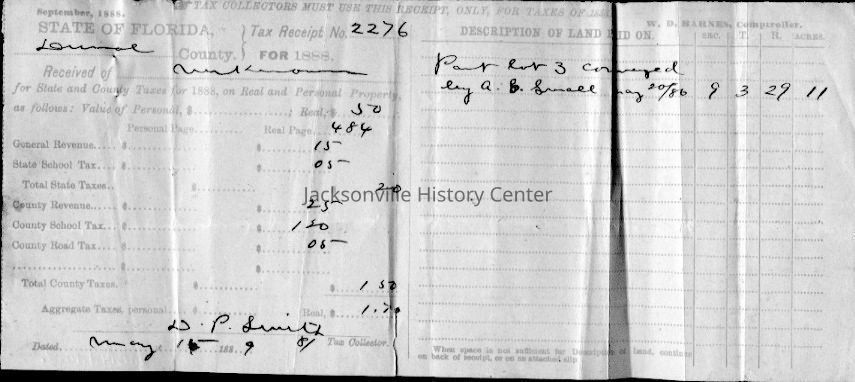 September, 1888.
TAX COLLECTORS MUST USE THIS RECEIPT, ONLY, FOR TAXES OF 188
W. D. BARNES, Comptroller.
STATE OF FLORIDA,
Duval County.
Tax Receipt No. 2276
FOR 1888.
DESCRIPTION OF LAND PAID ON.
SEC. T. R. ACRES.
Received of unknown
for State and County Taxes for 1888, on Real and Personal Property,
as follows: Value of Personal, $ ; Real, $ 50
Personal Page. Real Page. 484
General Revenue.. $ $ 15
State School Tax.. $ $ 05
Total State Taxes.. $ $ 20
County Revenue.. $ $ 25
County School Tax.. $ $ 1 20
County Road Tax.. $ $ 05
$ $
Total County Taxes. $ $ 1 50
Aggregate Taxes, personal Real, $ 1.70
D. P. Smith
Tax Collector.
Dated. May 15 188 9
Part lot 3 conveyed
by A. Small May 20/86 9 3 29 11
When space is not sufficient for Description of Land, continue
on back of receipt, or on an attached slip
Jacksonville History Center